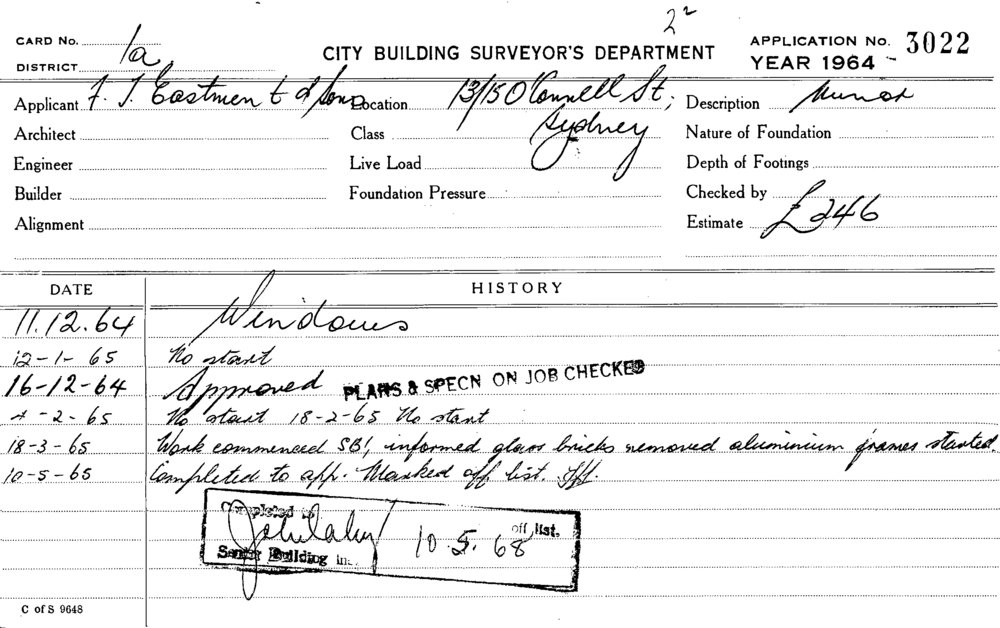 2²
CARD No. 1a
DISTRICT
CITY BUILDING SURVEYOR'S DEPARTMENT
APPLICATION No. 3022
YEAR 1964
Applicant F. T. Eastment & Sons Location 13/15 O'Connell St, Description Minor
Architect Class Sydney Nature of Foundation
Engineer Live Load Depth of Footings
Builder Foundation Pressure Checked by
Alignment Estimate £246
DATE HISTORY
11.12.64 Windows
12-1-65 No start
16-12-64 Approved PLANS & SPECN ON JOB CHECKED
4-2-65 No start 18-2-65 No start
18-3-65 Work commenced SB, informed glass bricks removed aluminium frames started.
10-5-65 Completed to app. Marked off list.
Completed off list.
10.5.68
Senior Building
C of S 9648